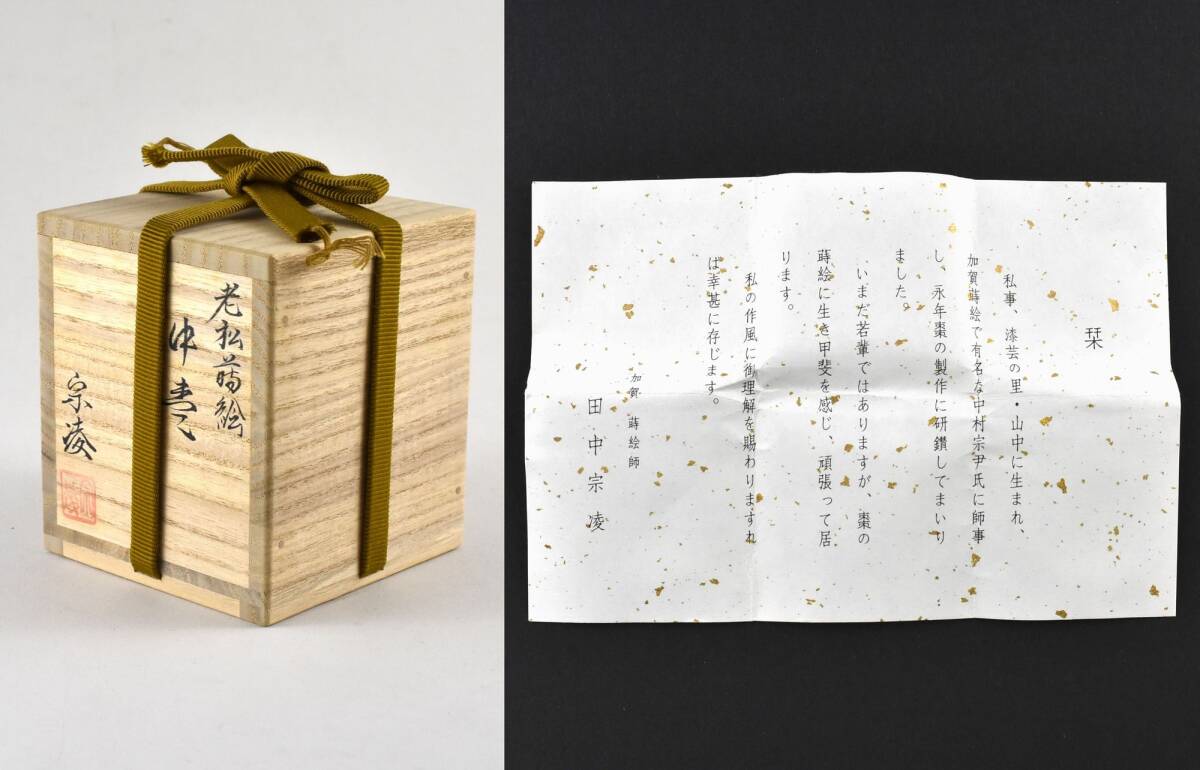 老松蒔絵
中棗
宗凌
栞
私事、漆芸の里・山中に生まれ、
加賀蒔絵で有名な中村宗尹氏に師事
し、永年棗の製作に研鑽してまいり
ました。
いまだ若輩ではありますが、棗の
蒔絵に生き甲斐を感じ、頑張って居
ります。
私の作風に御理解を賜わりますれ
ば幸甚に存じます。
加賀 蒔絵師
田中宗凌